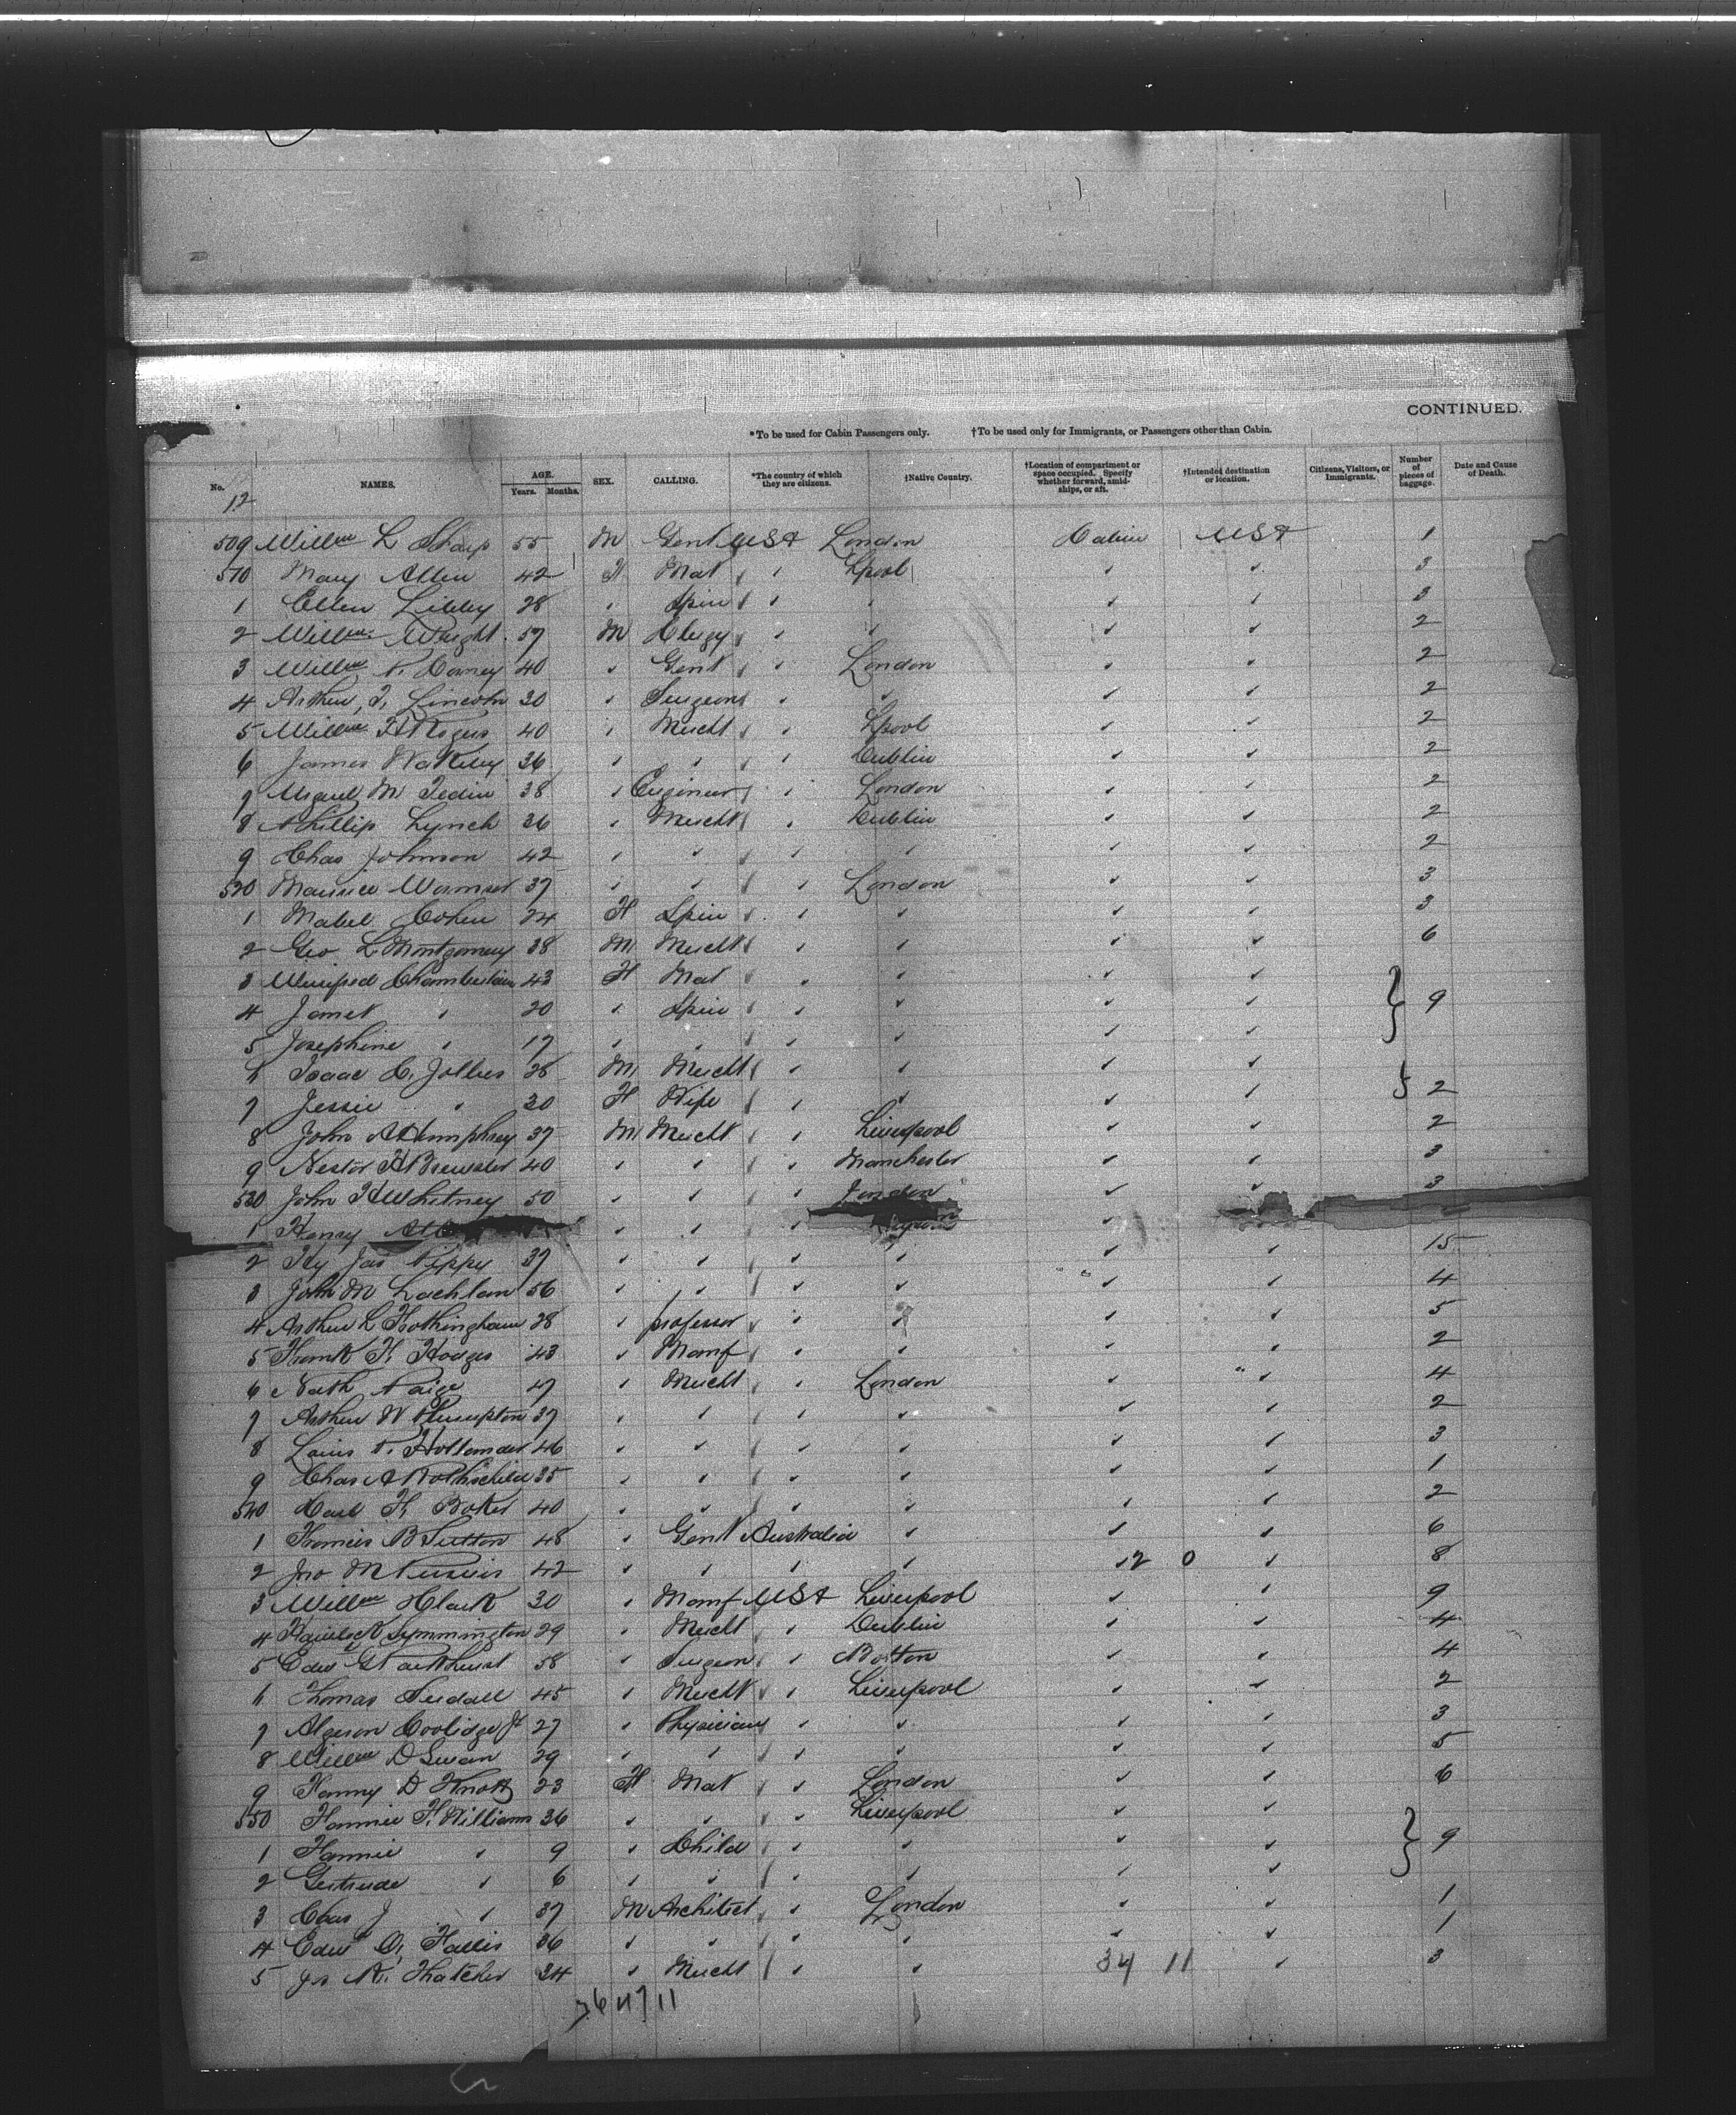 CONTINUED.
*To be used for Cabin Passengers only. †To be used only for Immigrants, or Passengers other than Cabin.
No. NAMES. AGE. Years. Months. SEX. CALLING. *The country of which they are citizens. †Native Country. †Location of compartment or space occupied. Specify whether forward, amidships, or aft. †Intended destination or location. Citizens, Visitors, or Immigrants. Number of pieces of baggage. Date and Cause of Death.
12
509 Willm L Sharp 55 M Gent USA London Cabin USA 1
510 Mary Allen 42 Mat " Lpool ✓ ✓ 3
1 Ellen Libby 28 " Spin " " ✓ ✓ 3
2 Willm Wright 57 M Clergy " " ✓ ✓ 2
3 Willm 40 " Gent " London ✓ ✓ 2
4 Arthur Lincoln 30 " Surgeon " " ✓ ✓ 2
5 Willm H Rogers 40 " Mercht " Lpool ✓ ✓ 2
6 James 36 " " " Dublin ✓ ✓ 2
7 Miguel M Tedin 38 " Engineer " London ✓ ✓ 2
8 Phillip Lynch 36 " Mercht " Dublin ✓ ✓ 2
9 Chas Johnson 42 " " " " ✓ ✓ 2
520 Maurice Wormser 37 " " " London ✓ ✓ 3
1 Mabel Cohen 24 F Spin " " ✓ ✓ 3
2 Geo L Montgomery 38 M Mercht " " ✓ ✓ 6
3 Winifred Chamberlain 43 F Mat " " ✓ ✓
4 Janet " 20 " Spin " " ✓ ✓ } 9
5 Josephine " 17 " " " " ✓ ✓
6 Isaac C. Jolles 36 M Mercht " " ✓ ✓
7 Jessie " 30 F Wife " " ✓ ✓ } 2
8 John A Humphrey 37 M Mercht " Liverpool ✓ ✓ 2
9 Nestor H Brewster 40 " " " Manchester ✓ ✓ 3
530 John H Whitney 50 " " " London ✓ ✓ 3
1 Henry " " " ✓
2 Hy Jas Pippy 37 " " " " ✓ ✓ 15
3 John M Lachlan 56 " " " " ✓ ✓ 4
4 Arthur L Frothingham 28 " professor " " ✓ ✓ 5
5 Frank F. Hodges 43 " Manf " " ✓ ✓ 2
6 Nath Paige 47 " Mercht " London ✓ ✓ 4
7 Arthur W Plumpton 37 " " " " ✓ ✓ 2
8 Louis P. Hollander 46 " " " " ✓ ✓ 3
9 Chas A Rothschild 35 " " " " ✓ ✓ 1
540 Carl F. Boker 40 " " " " ✓ ✓ 2
1 Thomas B Sutton 48 " Gent Australia " ✓ ✓ 6
2 Jno M 42 " " " " ✓ 2 0 ✓ 8
3 Willm Clark 30 " Manf USA Liverpool ✓ ✓ 9
4 Symmington 29 " Mercht " Dublin ✓ ✓ 4
5 Edwd G Parkhurst 58 " Surgeon " Boston ✓ ✓ 4
6 Thomas 45 " Mercht " Liverpool ✓ ✓ 2
7 Algeson Coolidge Jr 27 " Physician " " ✓ ✓ 3
8 Willm D Swan 29 " " " " ✓ ✓ 5
9 Fanny D Knott 23 F Mat " London ✓ ✓ 6
550 Fannie F. Williams 36 " " " Liverpool ✓ ✓
1 Fannie " 9 " Child " " ✓ ✓ } 9
2 Gertrude " 6 " " " " ✓ ✓
3 Chas J " 37 M Architect " London ✓ ✓ 1
4 Edwd 36 " " " " ✓ ✓ 1
5 Js R. Thatcher 34 " Mercht " " 34 11 ✓ 3